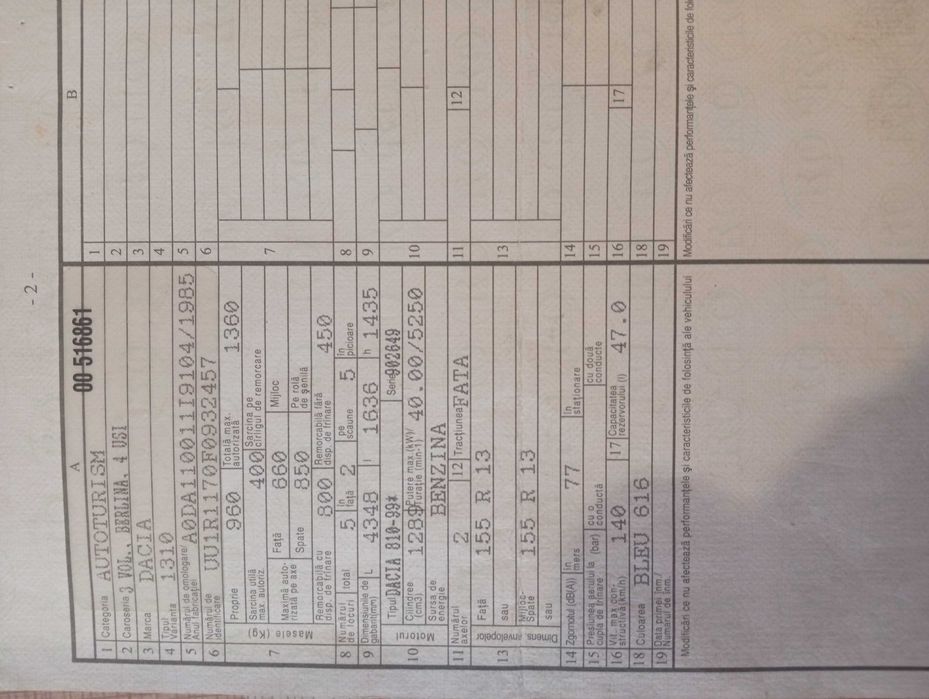 - 2 -
A 00 516861
1 Categoria AUTOTURISM
2 Caroseria 3 VOL., BERLINA, 4 USI
3 Marca DACIA
4 Tipul Varianta 1310
5 Numărul de omologare/ Anul fabricaţiei A0DA110011I9104/1985
6 Numărul de identificare UU1R1170F0932457
7 Masele (Kg)
Proprie 960 Totală max. autorizată 1360
Sarcina utilă max. autoriz. 400 Sarcina pe cîrligul de remorcare
Maximă autorizată pe axe Faţă 660 Mijloc
Spate 850 Pe rolă de şenilă
Remorcabilă cu disp. de frînare 800 Remorcabilă fără disp. de frînare 450
8 Numărul de locuri total 5 în faţă 2 pe scaune 5 în picioare
9 Dimensiunile de gabarit(mm) L 4348 l 1636 h 1435
10 Motorul
Tipul DACIA 810-99* Seria 902649
Cilindree (cm3) 1289 Putere max.(kW)/ Turaţie (min-1) 40.00/5250
Sursa de energie BENZINA
11 Numărul axelor 2 12 Tracţiunea FATA
13 Dimens. anvelopelor
Faţă 155 R 13
sau
Mijloc- Spate 155 R 13
sau
14 Zgomotul (dB(A)) în mers 77 în staţionare
15 Presiunea aerului la (bar) cupla de frînare cu o conductă cu două conducte
16 Vit. max.con- structivă(km/h) 140 17 Capacitatea rezervorului (l) 47.0
18 Culoarea BLEU 616
19 Data primei înm./ Numărul de înm.
Modificări ce nu afectează performanţele şi caracteristicile de folosinţă ale vehiculului
B
1
2
3
4
5
6
7
8
9
10
11 12
13
14
15
16 17
18
19
Modificări ce nu afectează performanţele şi caracteristicile de